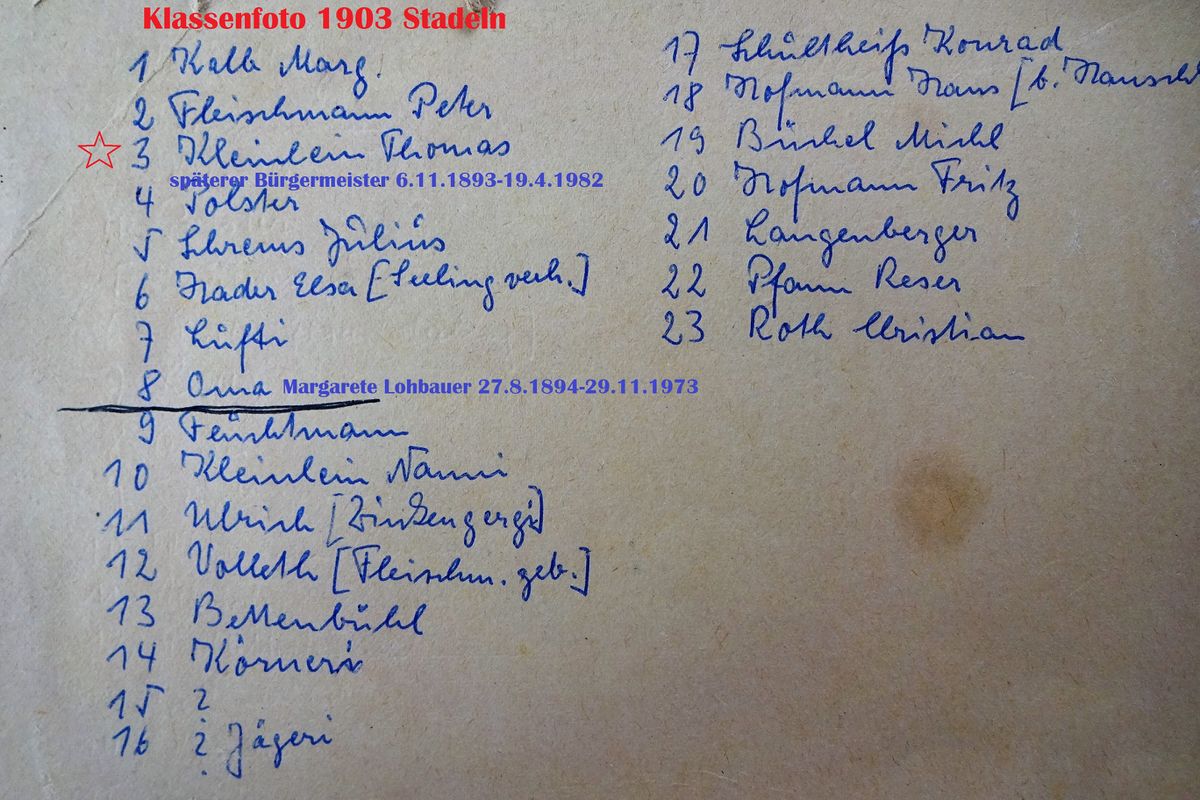 Klassenfoto 1903 Stadeln
1 Kalb Marg.
2 Fleischmann Peter
3 Kleinlein Thomas
späterer Bürgermeister 6.11.1893-19.4.1982
4 Polster
5 Schrems Julius
6 Nader Elsa [Seeling verh.]
7 Lufti
8 Oma Margarete Lohbauer 27.8.1894-29.11.1973
9 Feuchtmann
10 Kleinlein Nanni
11 Ulrich
12 Volleth [Fleischm. geb.]
13 Bettenbühl
14 Körneri
15 ?
16 ? Jägeri
17 Schultheiß Konrad
18 Hofmann Hans [b.
19 Büchel Michl
20 Hofmann Fritz
21 Langenberger
22 Pfann Reser
23 Roth Christian